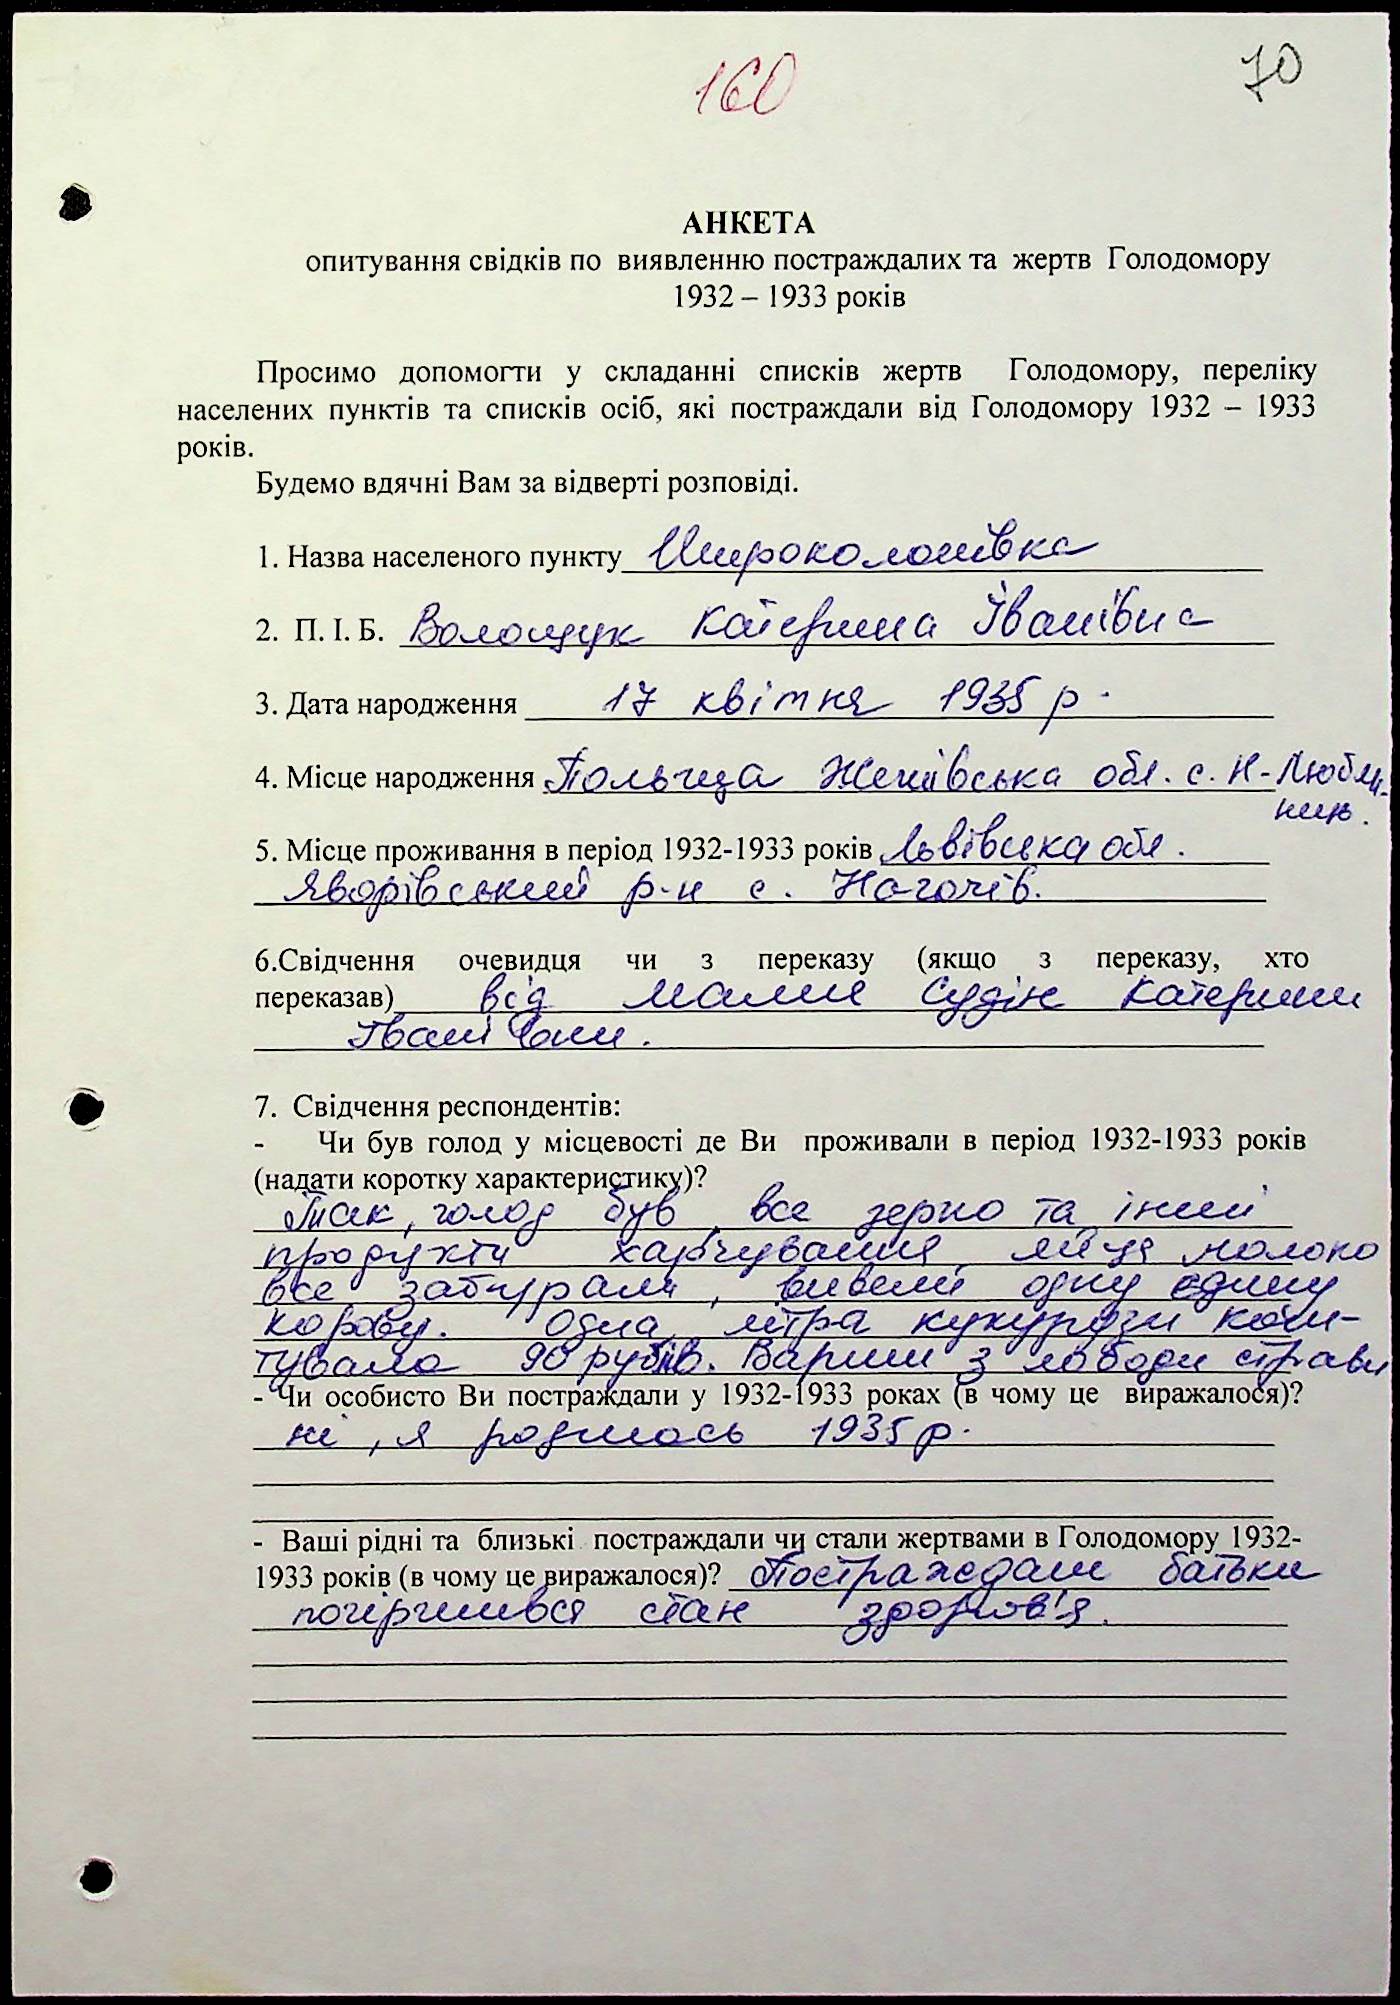 160
70
АНКЕТА
опитування свідків по виявленню постраждалих та жертв Голодомору
1932 – 1933 років
Просимо допомогти у складанні списків жертв Голодомору, переліку
населених пунктів та списків осіб, які постраждали від Голодомору 1932 – 1933
років.
Будемо вдячні Вам за відверті розповіді.
1. Назва населеного пункту Широколонівка
2. П. І. Б. Волощук Катерина Іванівна
3. Дата народження 17 квітня 1935 р.
4. Місце народження Польща Жешівська обл. с. Н-Любли-
нець.
5. Місце проживання в період 1932-1933 років Львівська обл.
Яворівський р-н с. Ногочів.
6.Свідчення очевидця чи з переказу (якщо з переказу, хто
переказав) від мами Судін Катерини
Іванівни.
7. Свідчення респондентів:
- Чи був голод у місцевості де Ви проживали в період 1932-1933 років
(надати коротку характеристику)?
Так, голод був, все зерно та інші
продукти харчування, яйця, молоко
все забирали, вивели одну єдину
корову. Одна літра кукурудзи кош-
тувала 90 рублів. Варили з лободи страви
- Чи особисто Ви постраждали у 1932-1933 роках (в чому це виражалося)?
ні, я родилась 1935 р.
- Ваші рідні та близькі постраждали чи стали жертвами в Голодомору 1932-
1933 років (в чому це виражалося)? Постраждали батьки
погіршився стан здоров'я.